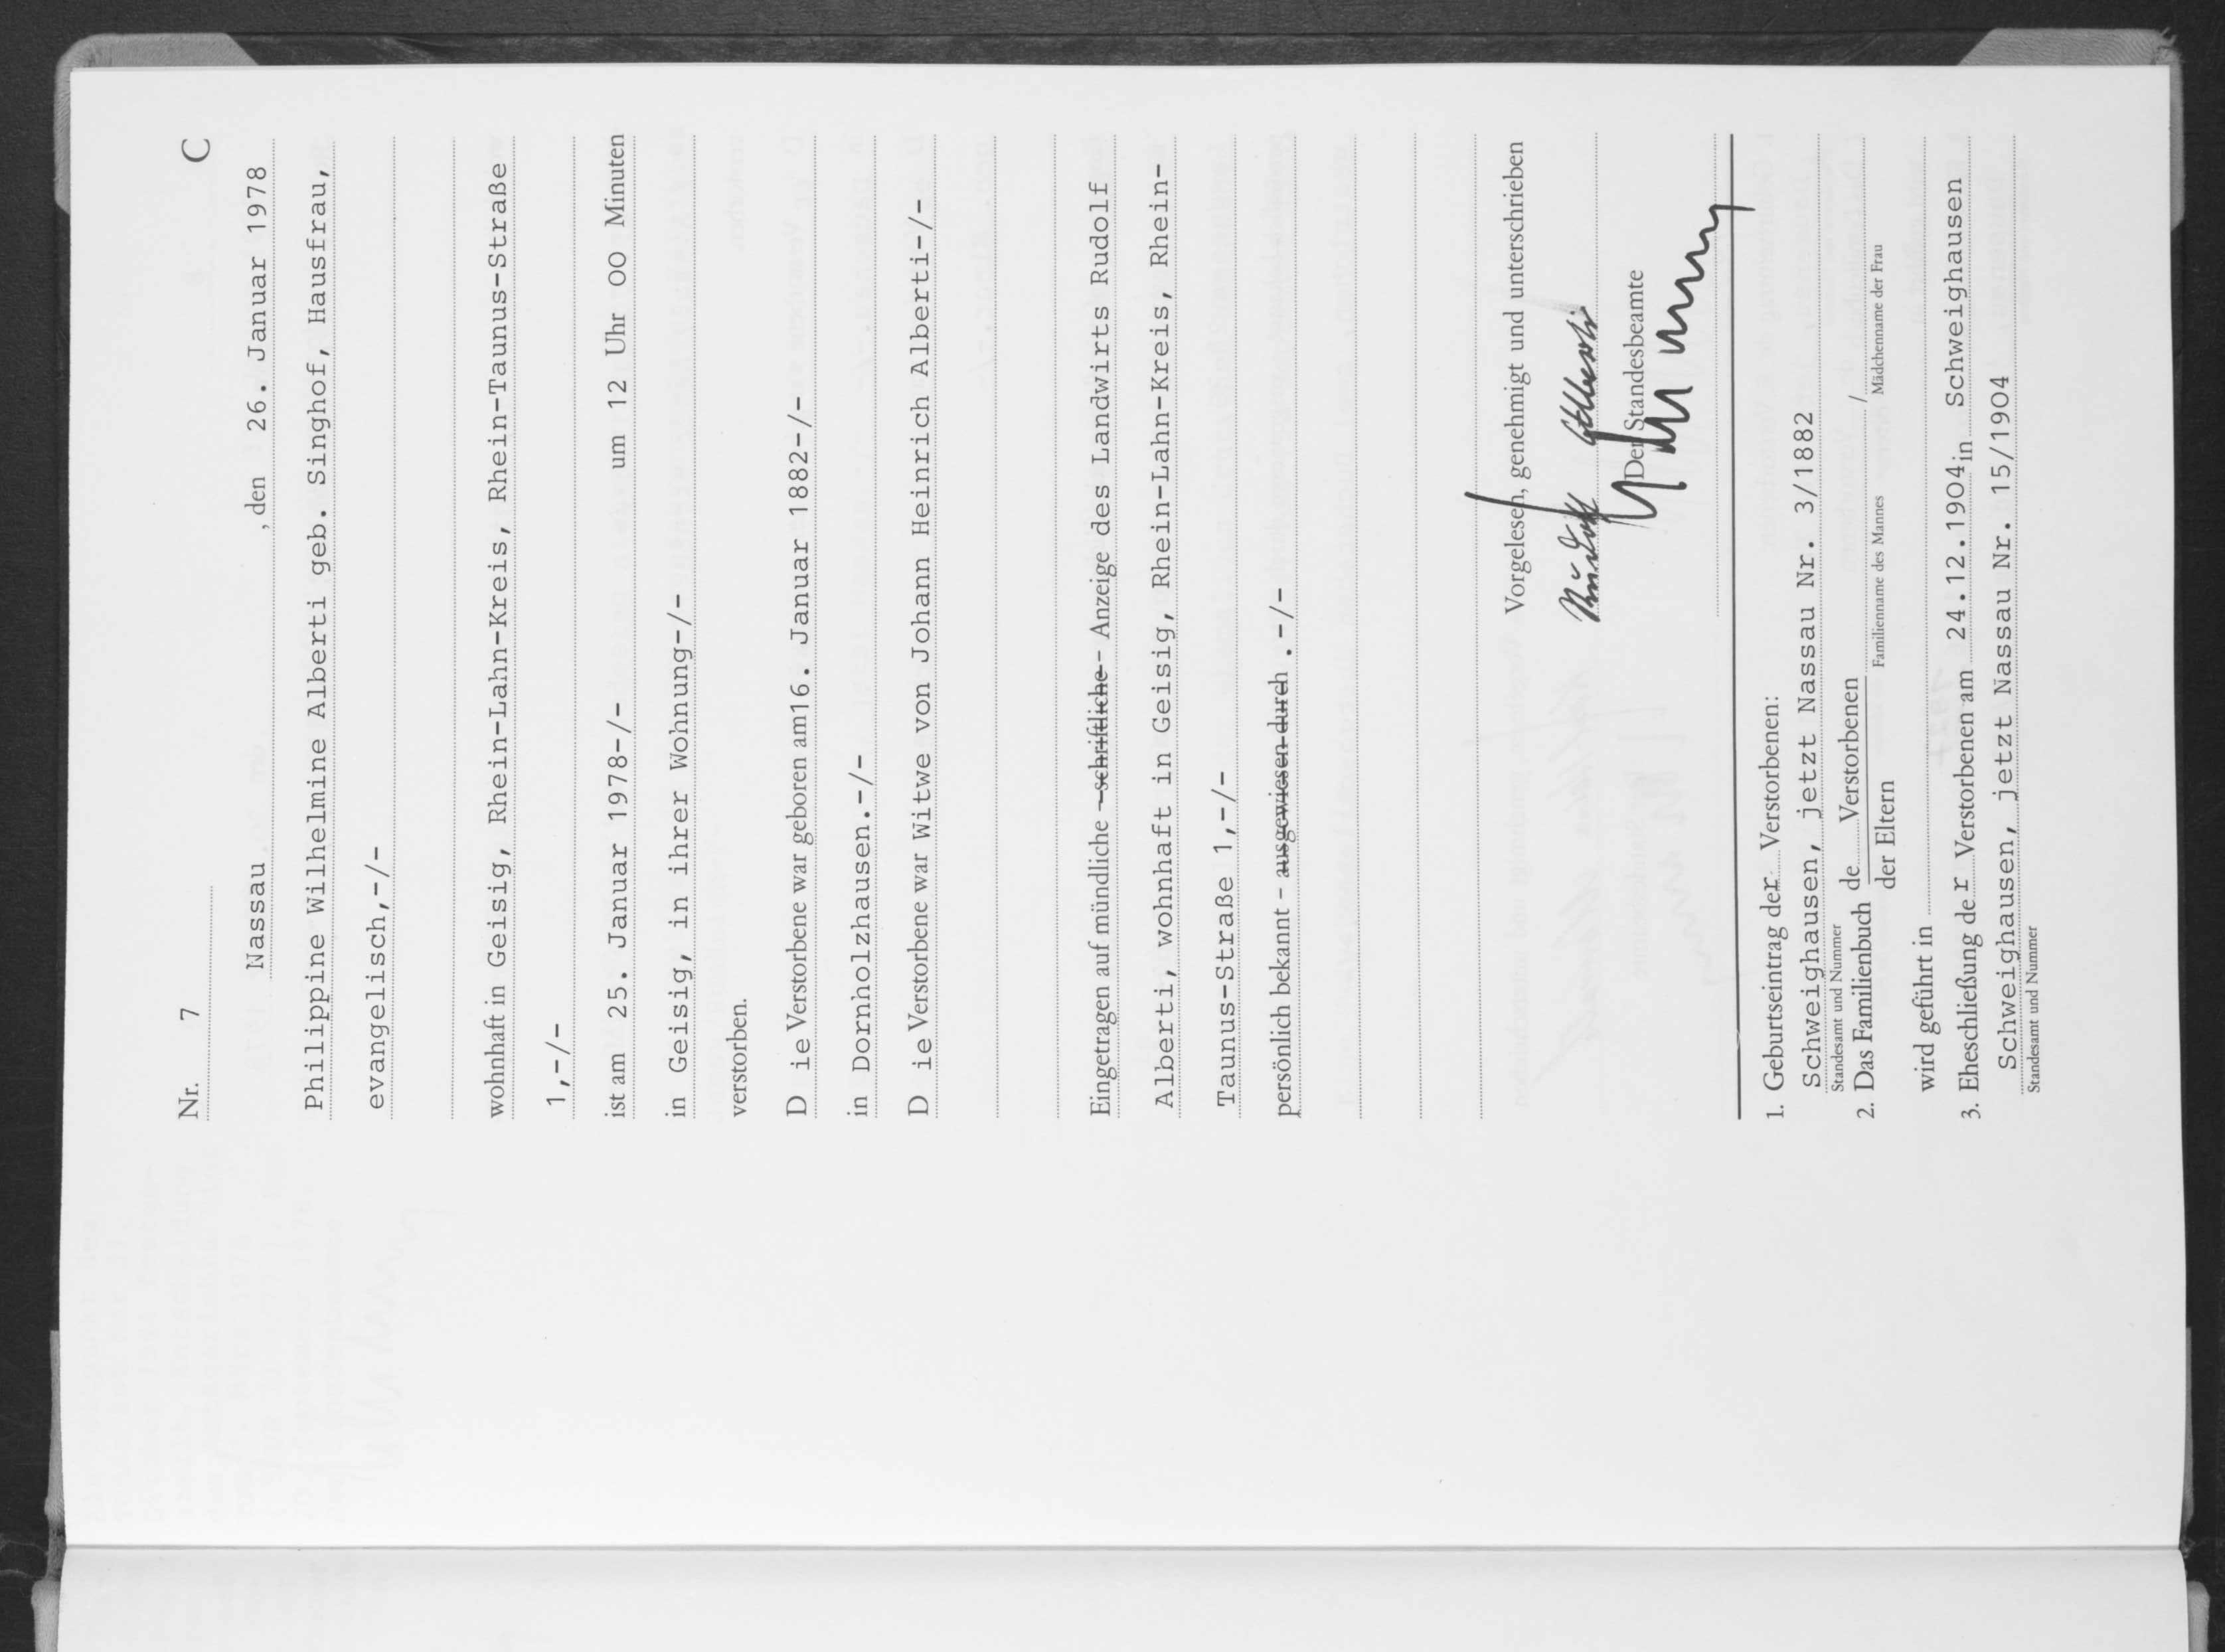 Nr. 7 C
Nassau, den 26. Januar 1978
Philippine Wilhelmine Alberti geb. Singhof, Hausfrau,
evangelisch,-/-
wohnhaft in Geisig, Rhein-Lahn-Kreis, Rhein-Taunus-Straße
1,-/-
ist am 25. Januar 1978-/- um 12 Uhr 00 Minuten
in Geisig, in ihrer Wohnung-/-
verstorben.
D ie Verstorbene war geboren am 16. Januar 1882-/-
in Dornholzhausen.-/-
D ie Verstorbene war Witwe von Johann Heinrich Alberti-/-
Eingetragen auf mündliche -schriftliche- Anzeige des Landwirts Rudolf
Alberti, wohnhaft in Geisig, Rhein-Lahn-Kreis, Rhein-
Taunus-Straße 1,-/-
persönlich bekannt - ausgewiesen durch .-/-
Vorgelesen, genehmigt und unterschrieben
Rudolf Alberti
Der Standesbeamte
1. Geburtseintrag der Verstorbenen:
Schweighausen, jetzt Nassau Nr. 3/1882
Standesamt und Nummer
2. Das Familienbuch de Verstorbenen /
der Eltern Familienname des Mannes Mädchenname der Frau
wird geführt in
3. Eheschließung der Verstorbenen am 24.12.1904 in Schweighausen
Schweighausen, jetzt Nassau Nr. 15/1904
Standesamt und Nummer